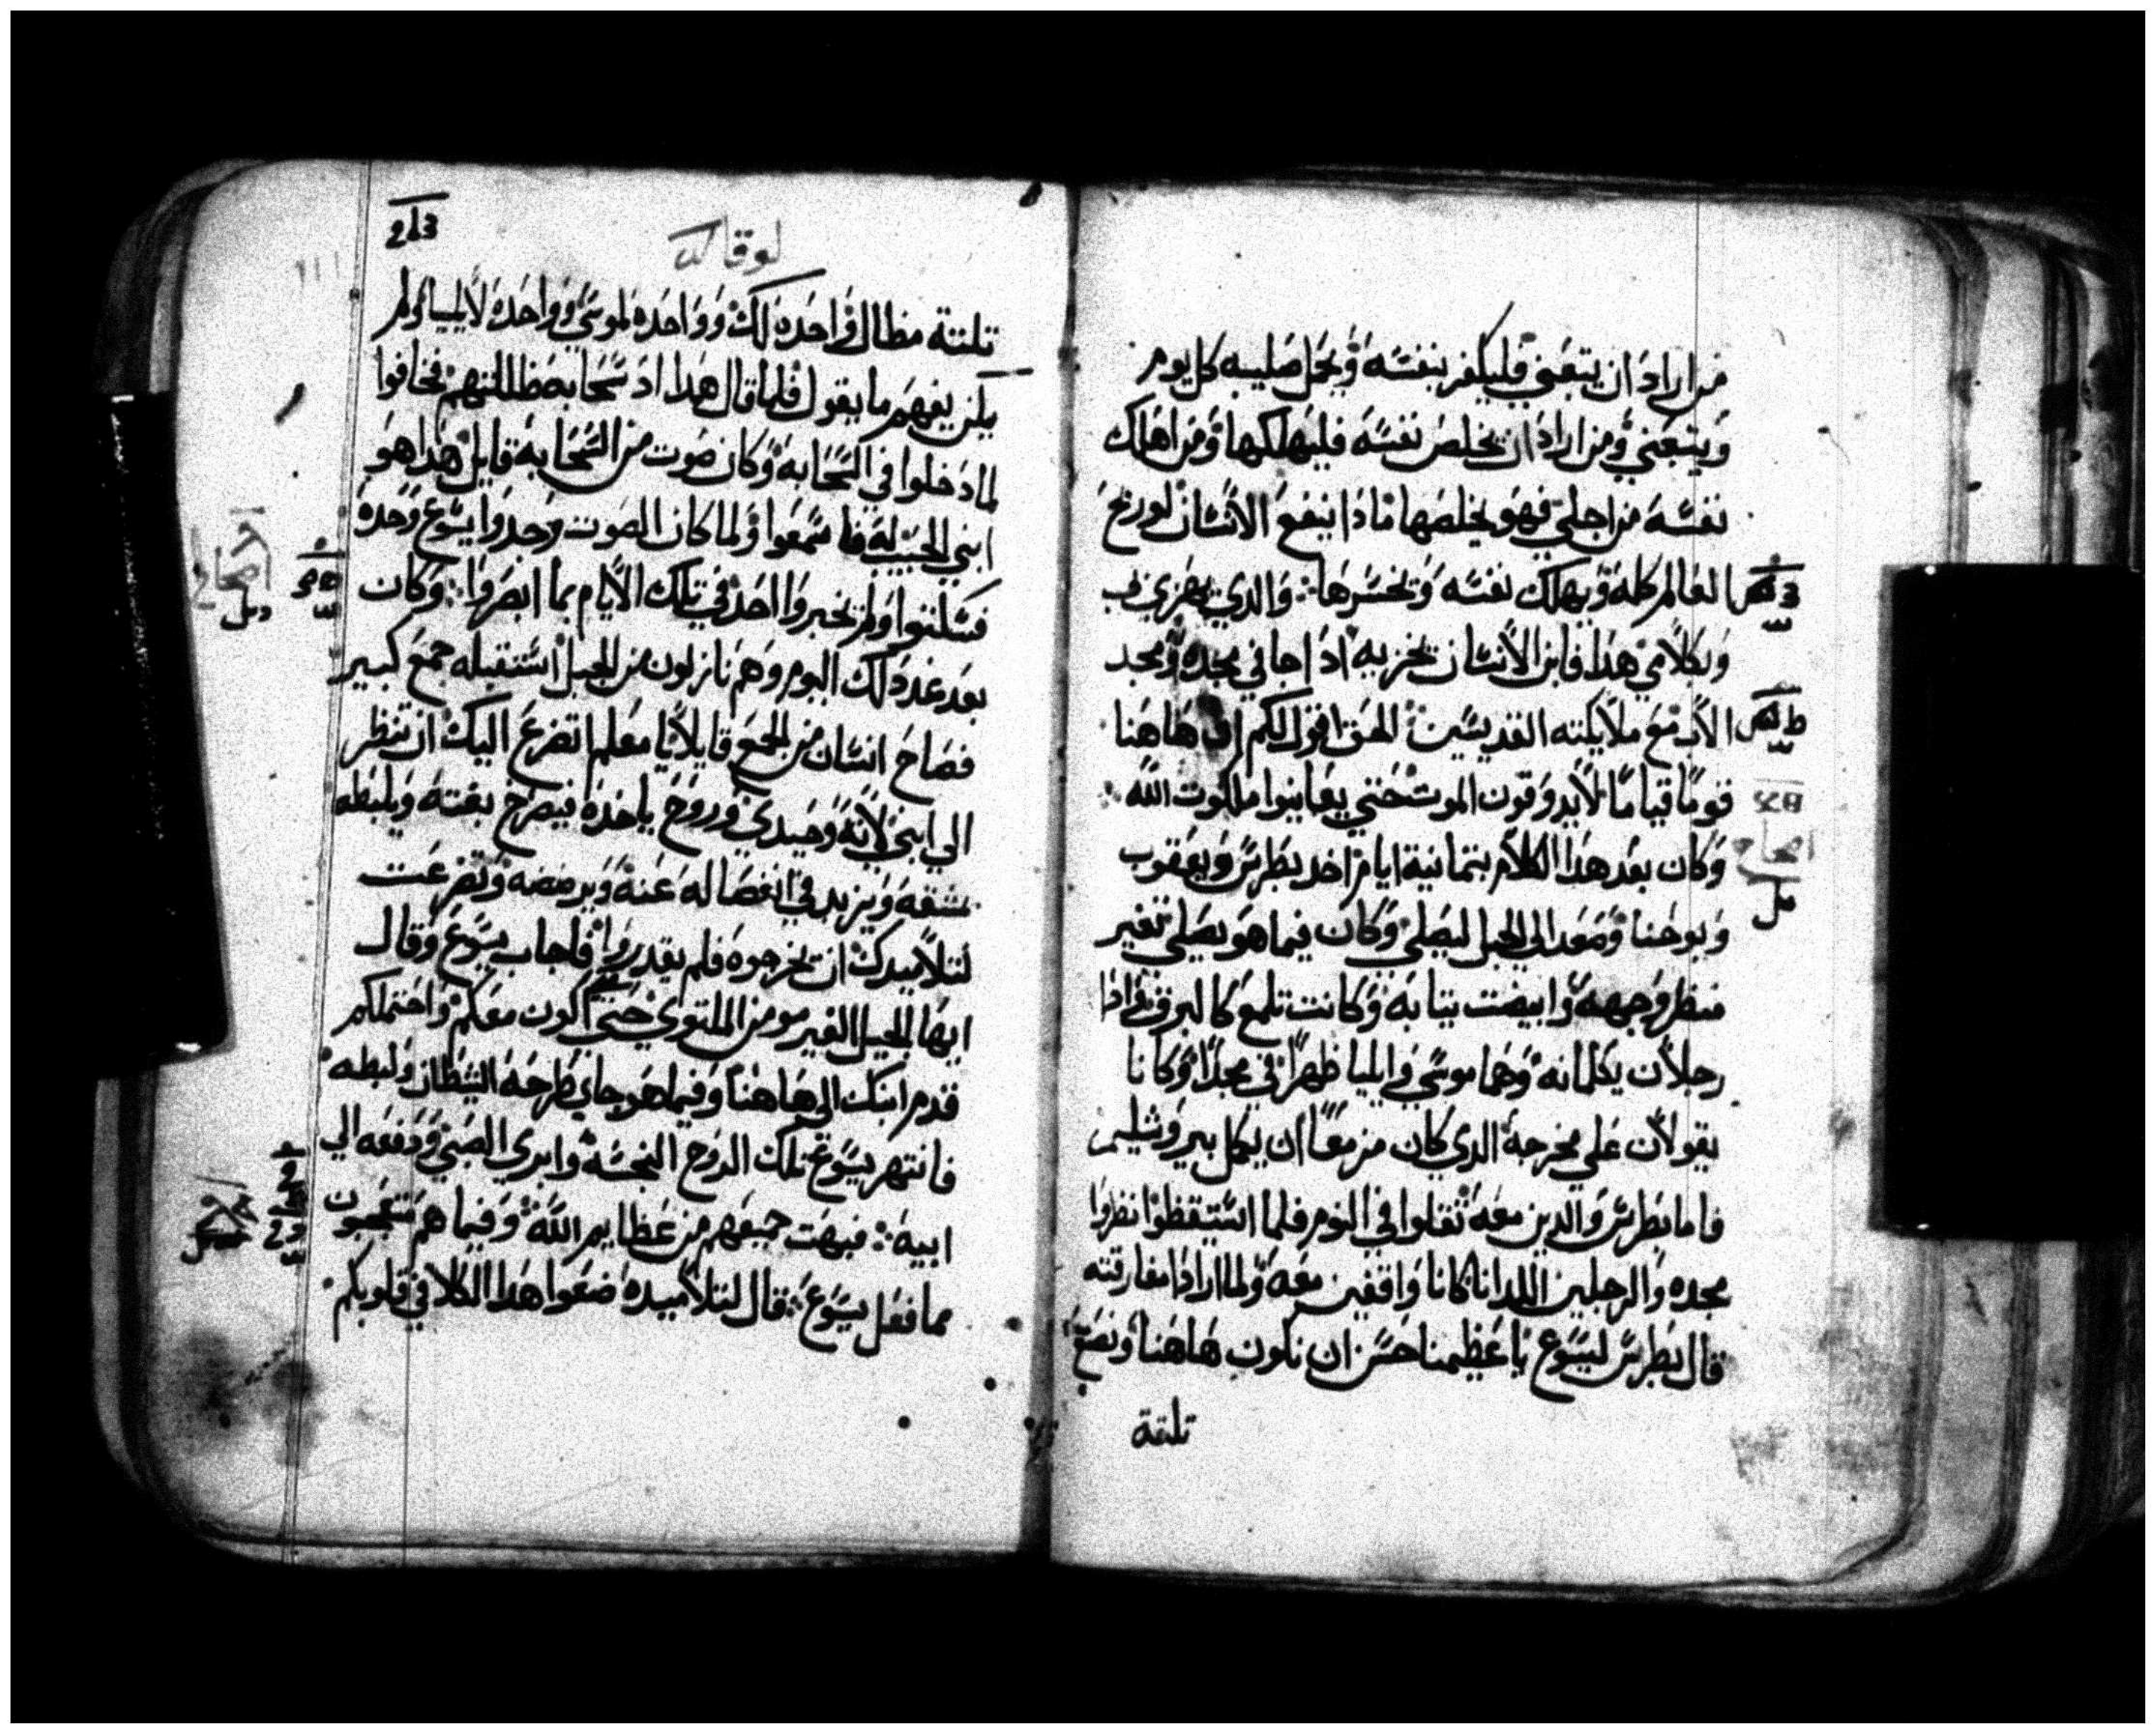 من اراد ان يتبعني فليكفر بنفسه ويحمل صليبه كل يوم
ويتبعني ومن اراد ان يخلص نفسه فليهلكها ومن اهلك
نفسه من اجلي فهو يخلصها ماذا ينفع الانسان لو ربح
العالم كله ويهلك نفسه وتخسرها والدي يخزي بي
وبكلامي هدا فابن الانسان يخزيه ادا جا في مجده ومجد
الاب مع ملايكته القديسين الحق اقول لكم ان هاهنا
قوما قياما لايدوقون الموت حتي يعاينوا ملكوت الله
وكان بعد هدا الكلام بتمانية ايام اخد بطرس ويعقوب
ويوحنا وصعد الي الجبل ليصلي وكان فيما هو يصلي تغير
منظر وجهه وابيضت تيابه وكانت تلمع كالبرق واذا
رجلان يكلمانه وهما موسي وايليا ظهرا في مجد وكانا
يقولان علي مخرجه الدي كان مزمعا ان يكمل بيروشليم
فاما بطرس والدين معه تقلوا في النوم فلما استيقظوا نظروا
مجده والرجلين اللدان كانا واقفين معه ولما ارادا مفارقته
قال بطرس ليسوع يا عظيمنا حسن ان نكون هاهنا ونصنع
تلتة
213
لوقا
تلتة مظال واحده لك وواحده لموسي وواحده لايليا ولم
يكن يفهم ما يقول فلما قال هدا اد سحابه ظللتهم فخافوا
لما دخلوا في السحابه وكان صوت من السحابة قايل هدا هو
ابني الحبيب له فاسمعوا ولما كان الصوت وجدوا يسوع وحده
فسكتوا ولم يخبروا احد في تلك الايام بما ابصروا وكان
بعد غد دلك اليوم وهم نازلون من الجبل استقبله جمع كبير
فصاح انسان من الجمع قايلا يا معلم اتضرع اليك ان تنظر
الي ابني لانه وحيدي وروح ياخده فيصرخ بغته ويلبطه
بمشقه ويزيد في انفصاله عنه ويرضضه وتضرعت
لتلاميدك ان يخرجوه فلم يقدروا فاجاب يسوع وقال
ايها الجيل الغير مومن الملتوي حتي متي اكون معكم واحتملكم
قدم ابنك الي هاهنا وفيما هو جاي طرحه الشيطان ولبطه
فانتهر يسوع تلك الروح النجسه وابري الصبي ودفعه الي
ابيه فبهت جميعهم من عظايم الله وفيما هم متعجبون
مما فعل يسوع قال لتلاميده ضعوا هدا الكلا في قلوبكم